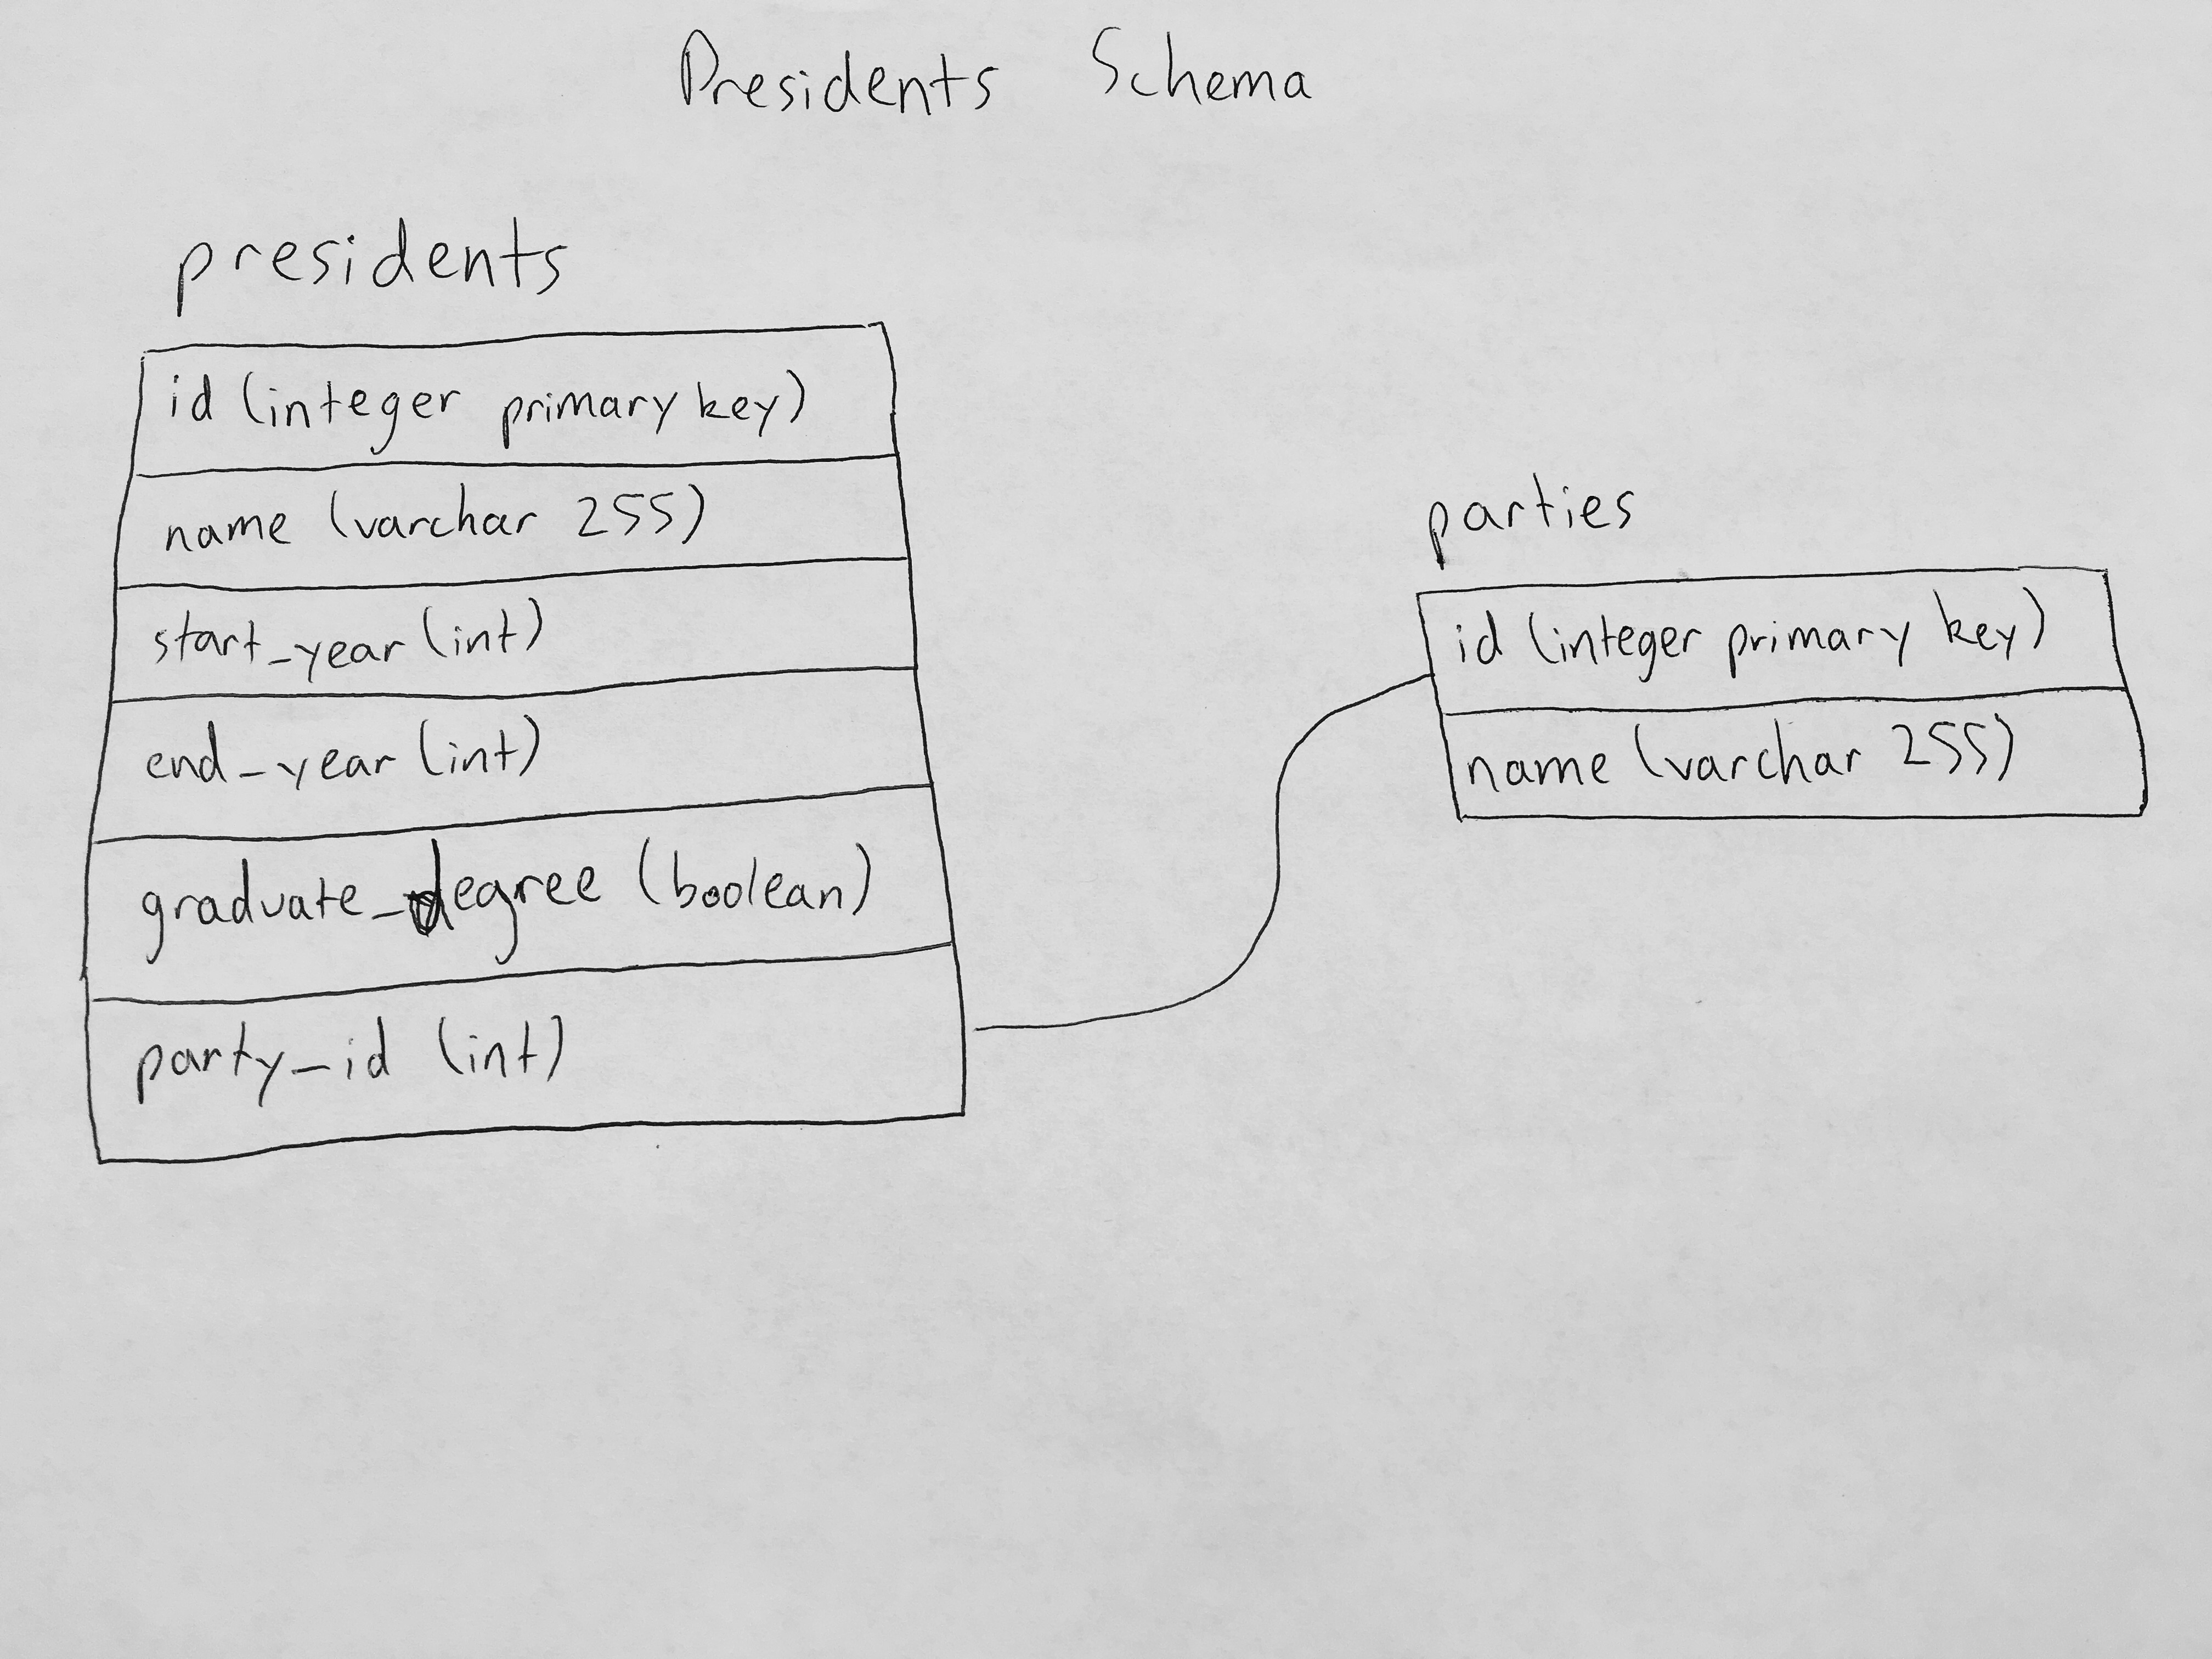 Presidents Schema
presidents
id (integer primary key)
name (varchar 255)
start_year (int)
end_year (int)
graduate_degree (boolean)
party_id (int)
parties
id (integer primary key)
name (varchar 255)